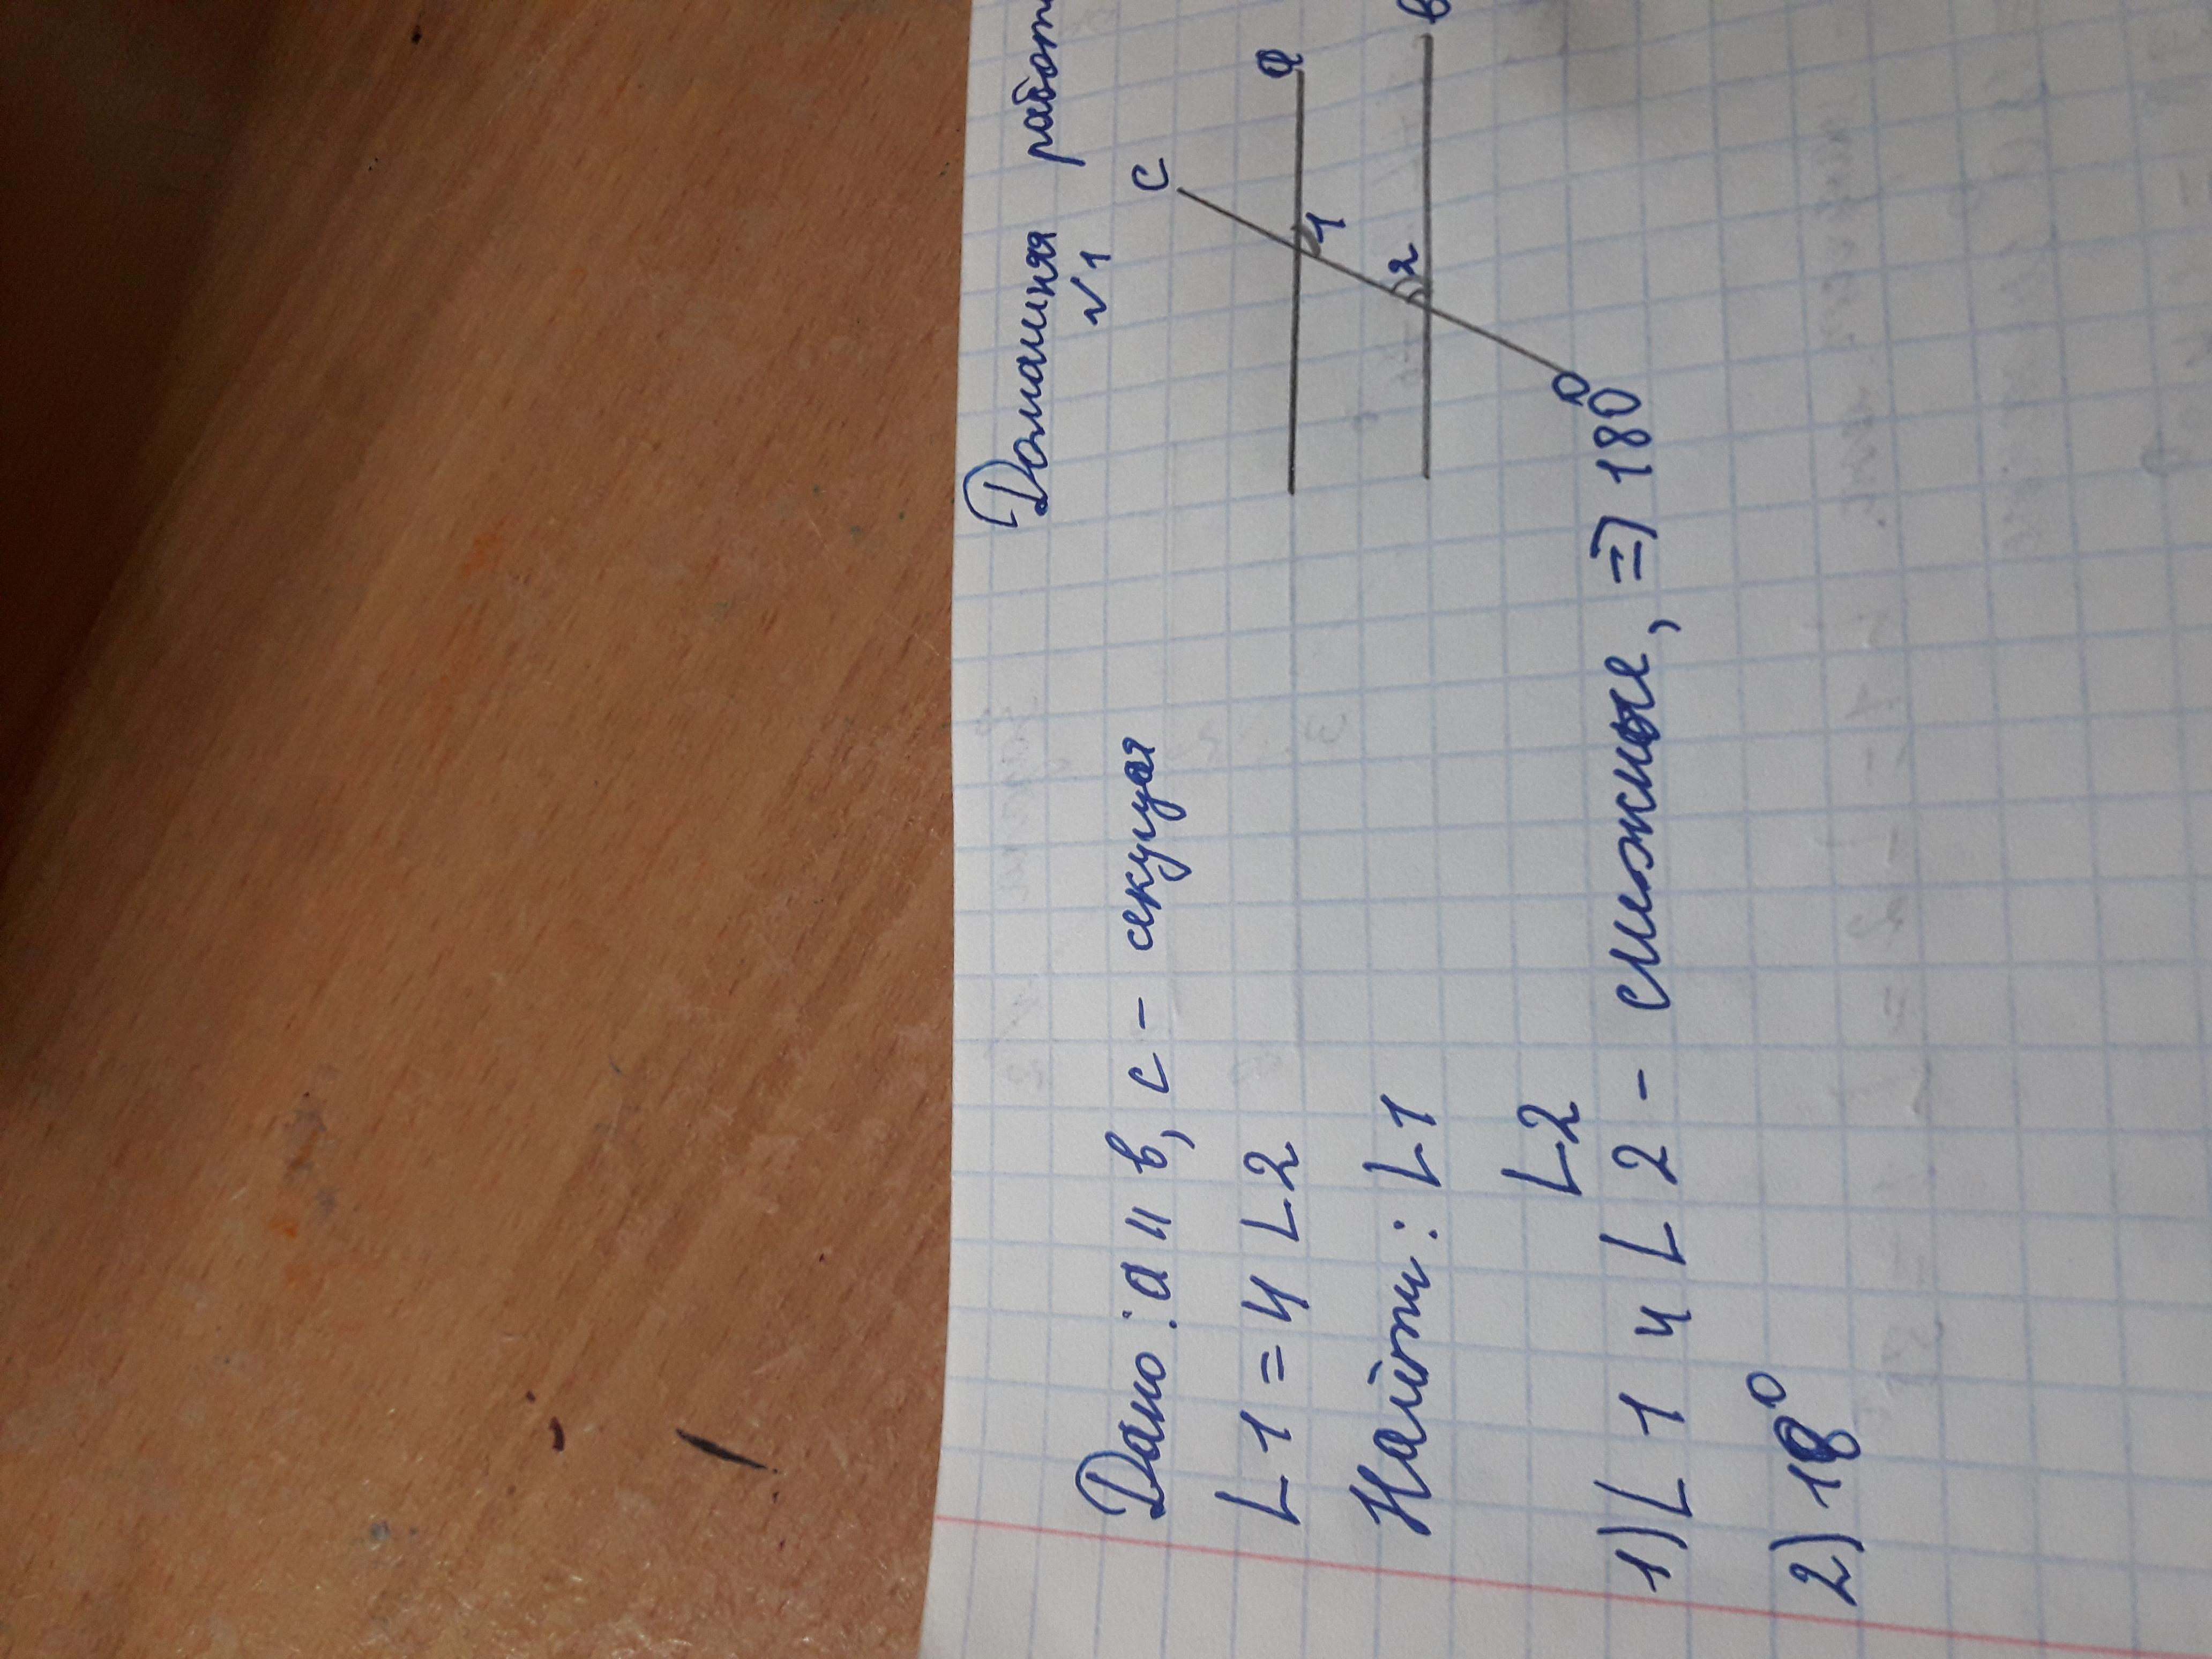 Домашняя работ
√1
Дано: а || в, с - секущая
∟1 = 4 ∟2
Найти: ∟1
∟2
с
а
1
2
в
1) ∟1 и ∟2 - смежные, => 180°
2) 18°